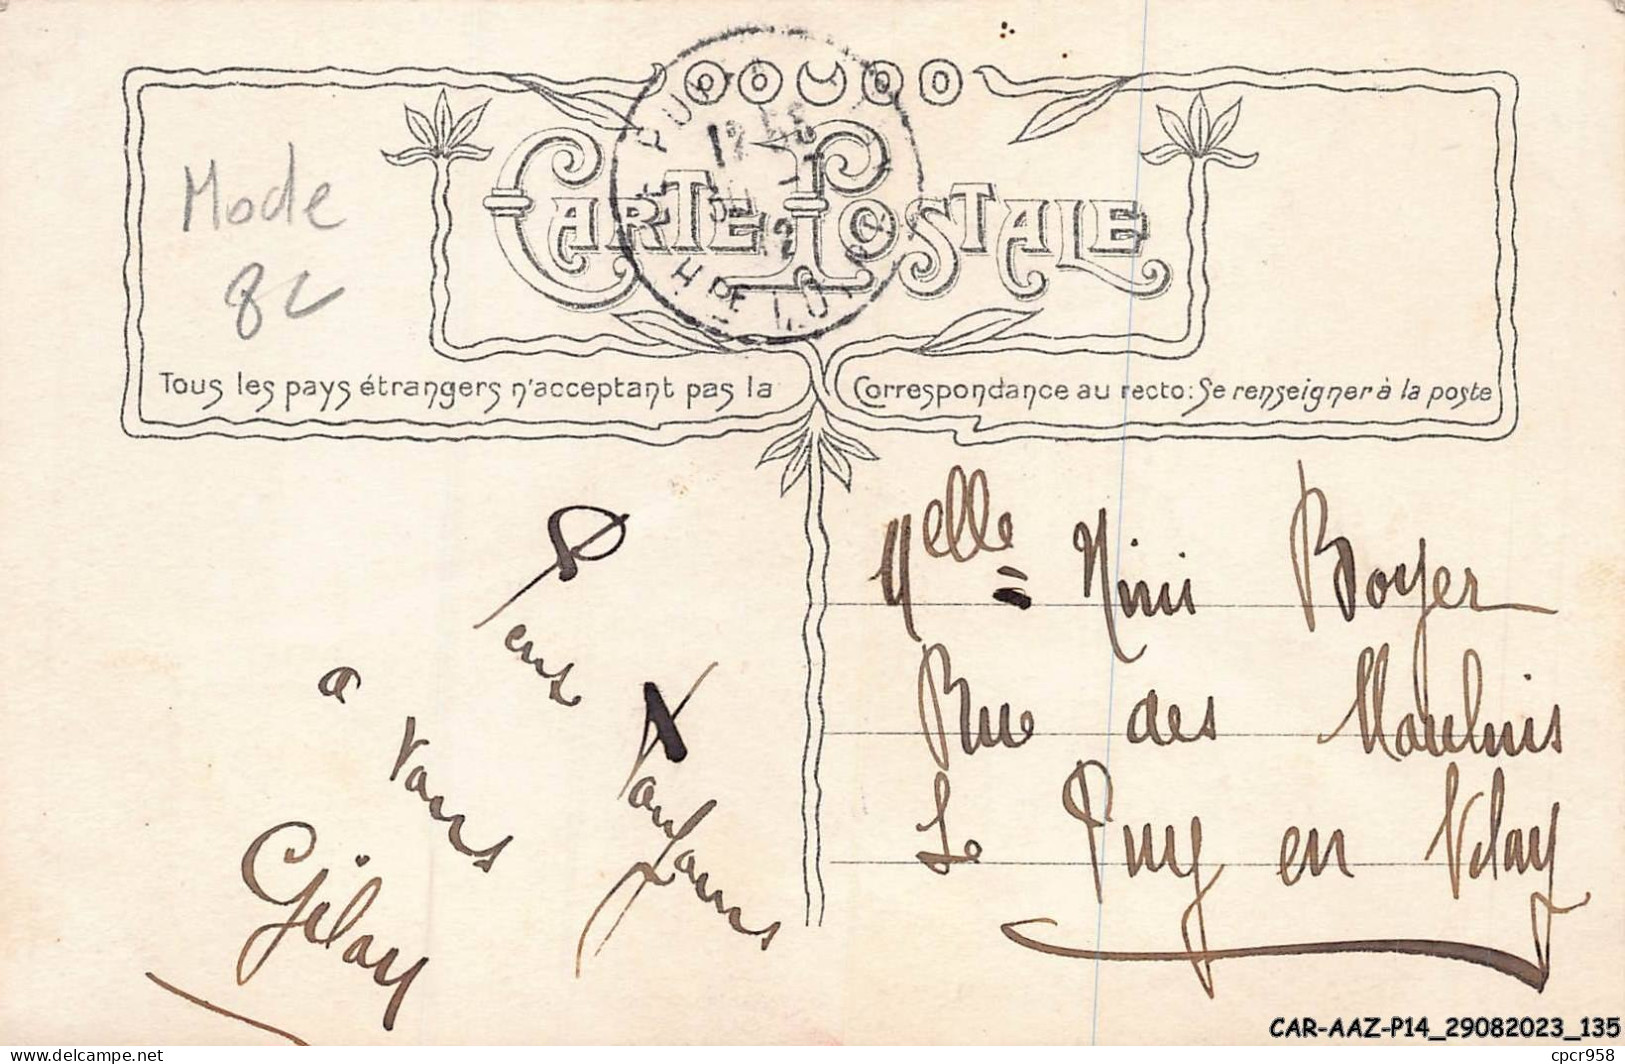 CARTE POSTALE
Mode
8c
PUY
12
Hᵀᴱ LOIRE
Tous les pays étrangers n'acceptant pas la
Correspondance au recto: Se renseigner à la poste
Melle Nini Boyer
Rue des Moulins
Le Puy en Velay
Pens
Toujours
a Vous
Gilay
CAR-AAZ-P14_29082023_135
cpcr958